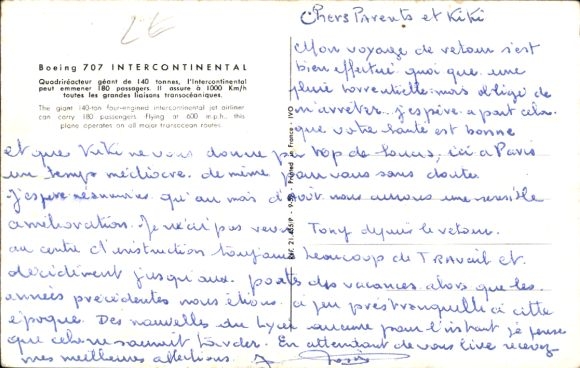 2€
Boeing 707 INTERCONTINENTAL
Quadriréacteur géant de 140 tonnes, l'Intercontinental
peut emmener 180 passagers. Il assure à 1000 Km/h
toutes les grandes liaisons transocéaniques.
The giant 140-ton four-engined intercontinental jet airliner
can carry 180 passengers. Flying at 600 m.p.h., this
plane operates on all major transocean routes.
Printed in France - IVO
Chers Parents et Kiki
Mon voyage de retour s'est
bien effectué quoi que une
pluie torrentielle m'ais obligé de
m'arreter. j'espère a part cela
que votre santé est bonne
et que Kiki ne vous donne pas trop de soucis, ici a Paris
un temps médiocre de même pour vous sans doute.
J'espère néanmoins qu'au mois d'Août nous aurons une sensible
amélioration. Je n'ai pas revu Tony depuis le retour.
au centre d'instruction toujours beaucoup de TRAVAIL et
décidément jusqu'aux portes des vacances alors que les
années précédentes nous étions à peu près tranquille à cette
époque. Des nouvelles du Lycée aucune pour l'instant je pense
que cela ne saurait tarder. En attendant de vous lire recevez
mes meilleures affections.